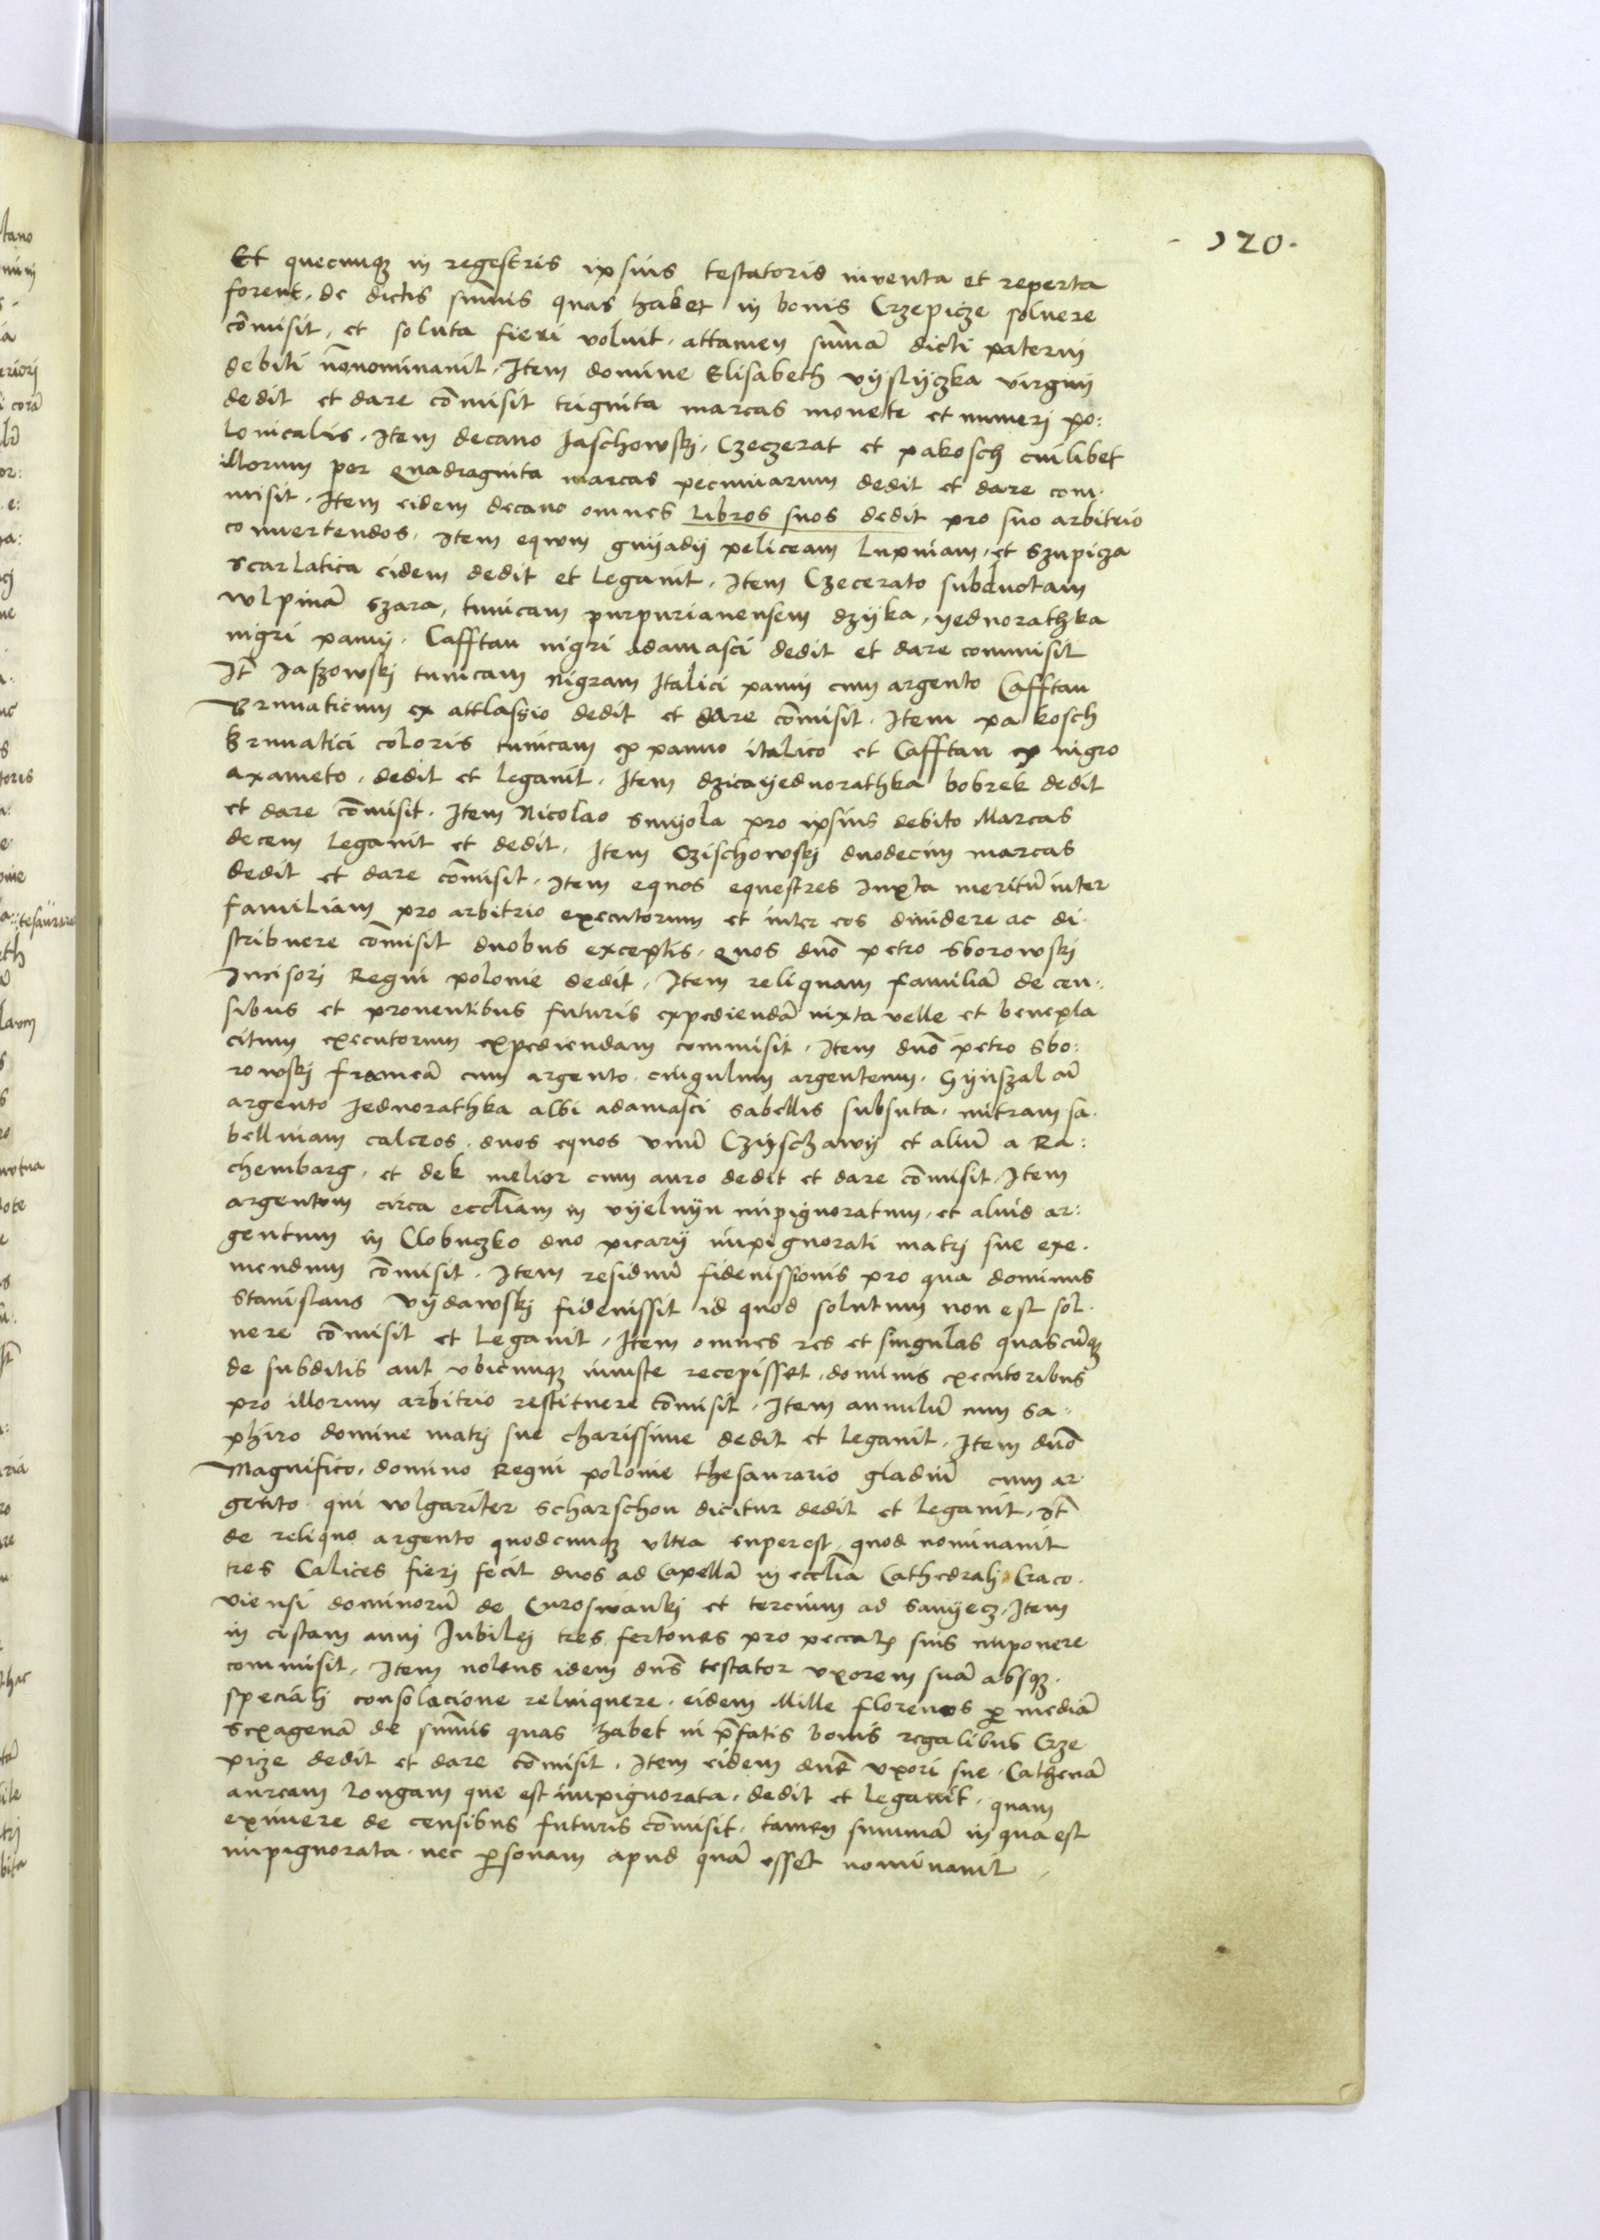 - 120 -
Et quecunqꝫ in regestris ipsius testatoris inventa et reperta
forent, de dictis sum̄is quas habet in bonis Crzepicze solvere
com̄isit, et soluta fieri voluit, attamen sum̄ā dicti paterni
debiti nōnominavit. Item domine Elisabeth vyslyczka virgini
dedit et dare com̄isit triginta marcas monete et numeri po:
lonicalis. Item decano Jaschowskj, Czeczerat et pakosch cuilibet
illorum per Quadraginta marcas pecuniarum dedit et dare com.
misit. Item eidem decano omnes Libros suos dedit pro suo arbitrio
convertendos. Item equum gnyady peliceam Lupinam, et Szupicza
scarlatica eidem dedit et legavit. Item Czecerato subductam
wlpinā szara, tunicam purpurianensem dzyka, yednorathka
nigri panny. Cafftan nigri adamasci dedit et dare commisit
It̄ Jaszowskj tunicam Nigram Italici panni cum argento Cafftan
Brunaticum ex attlassio dedit et dare com̄isit. Item pakosch
Brunatici coloris tunicam ex panno italico et Cafftan ex nigro
axameto, dedit et legavit. Item dzicayednorathka bobrek dedit
et dare com̄isit. Item Nicolao smyola pro ipsius debito Marcas
decem legavit et dedit. Item Czischowskj duodecim marcas
dedit et dare com̄isit. Item equos equestres Iuxta meritū inter
familiam pro arbitrio executorum et inter eos dividere ac di.
stribuere com̄isit duobus exceptis, Quos dn̄o petro sborowskj
Incisorj Regni polonie dedit. Item reliquam familiā de cen.
sibus et proventibus futuris expediendā iuxta velle et benepla
citum executorum expediendam commisit. Item dn̄o petro sbo:
rowskj frameā cum argento, cingulum argenteum. Hynszal cū
argento Jednorathka albi adamasci sabellis subsuta, mitram sa.
bellinam calcros, duos equos unū Czyschawy et aliū a Ra:
chembarg, et dek melior cum auro dedit et dare com̄isit. Item
argentum circa eccl̄iam in vyelnyn inpignoratum, et aliud ar:
gentum in Clobuczko duo picarij inpignorati matrj sue exe.
mendum com̄isit. Item residuū fideiussionis pro qua dominus
Stanislaus Vydawskj fideiussit id quod solutum non est sol.
vere com̄isit et legavit. Item omnes res et singulas quascūqꝫ
de subditis aut ubicunqꝫ iniuste recepisset, dominis executoribus
pro illorum arbitrio restituere com̄isit. Item annulū cum sa..
phiro domine matrj sue charissime dedit et legavit. Item dn̄o
Magnifico, domino Regni polonie thesaurario gladiū cum ar
gento qui wlgariter scharschon dicitur dedit et legavit. It̄
de reliquo argento quodcunqꝫ ultra superest, quod nominavit
tres Calices fierj fecit duos ad Capellā in eccl̄ia Cathedralj Craco.
viensi dominorū de Curoswankj et tercium ad sanyecz. Item
in cistam anni Iubilej tres fertones pro peccatꝭ suis inponere
commisit. Item nolens idem dn̄s testator uxorem suā absqꝫ.
specialj consolacione relinquere, eidem Mille florenos ꝑ mediā
sexagenā de sum̄is quas habet in p̄fatis bonis regalibus Crze
picze dedit et dare com̄isit. Item eidem dn̄e uxori sue. Cathenā
auream longam que est inpignorata, dedit et legavit. quam
eximere de censibus futuris com̄isit, tamen summā in qua est
inpignorata, nec ꝑsonam apud quā esset nominavit